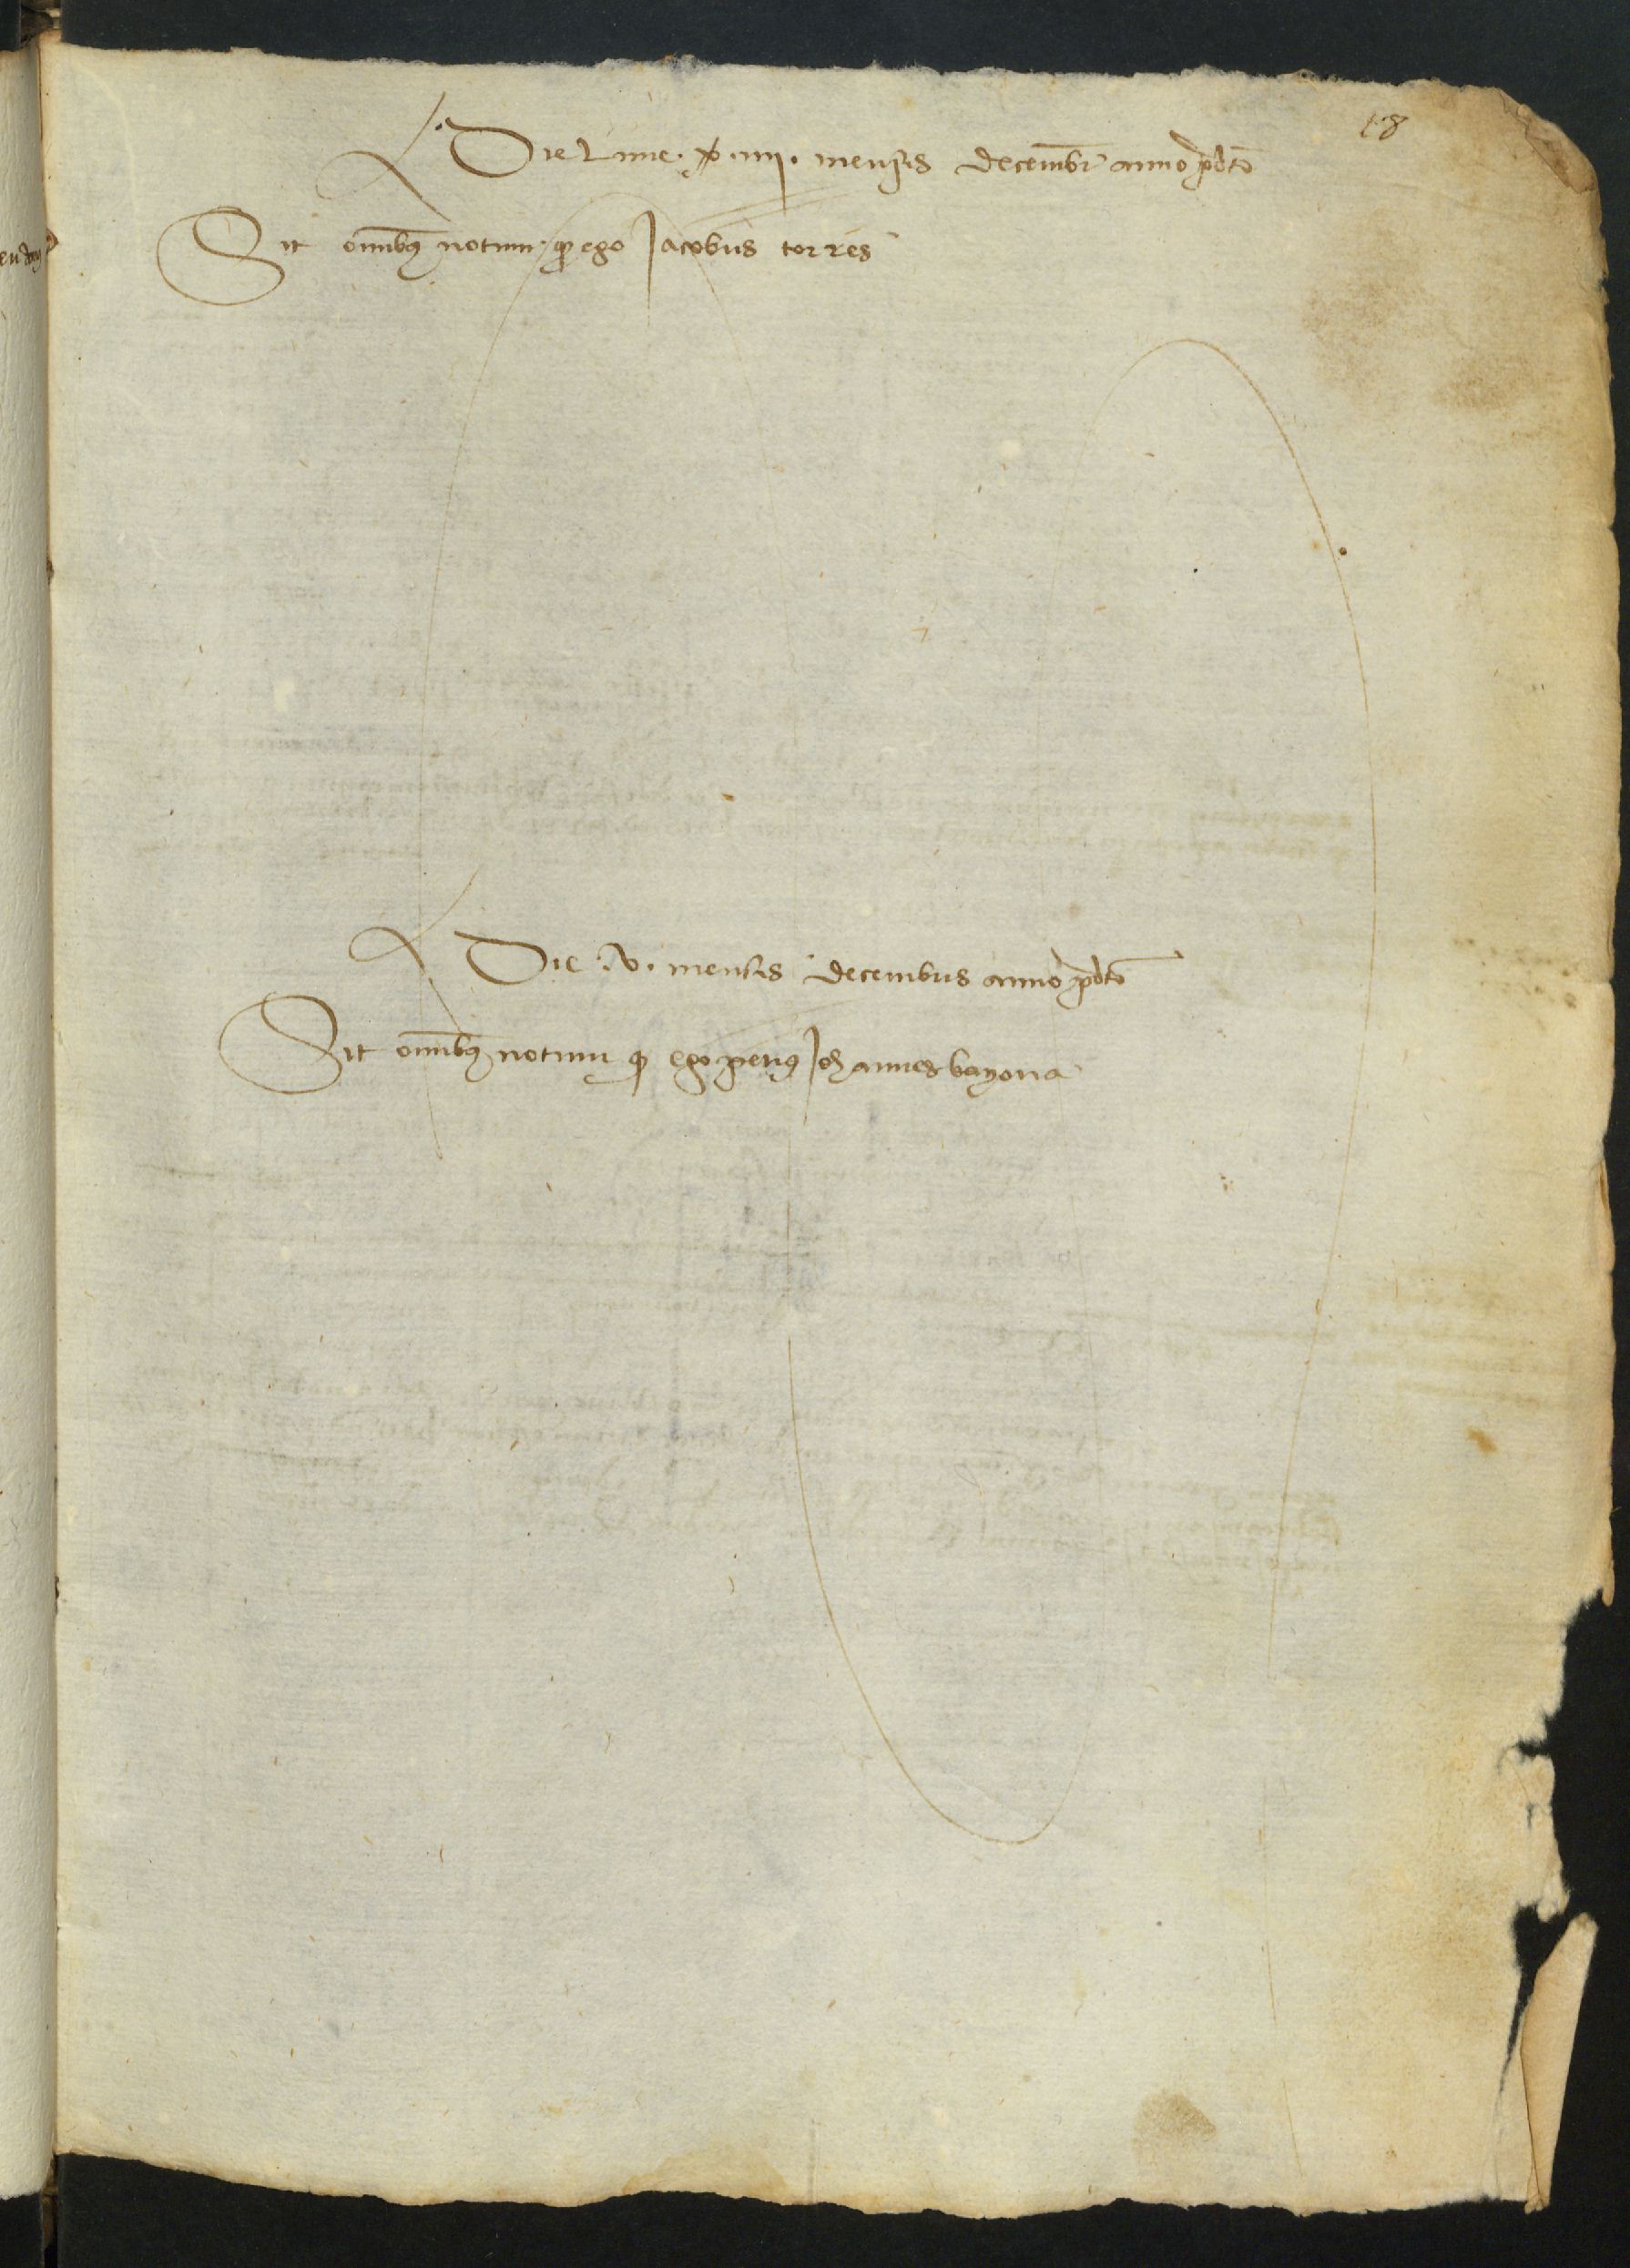 18
Die Lune · x · iiij · mensis decembr anno pdto
Sit omnibq notum q ego Jacobus torres
Die · v · mensis decembris anno pdto
Sit omnibq notum q ego petrq Johannes bayona